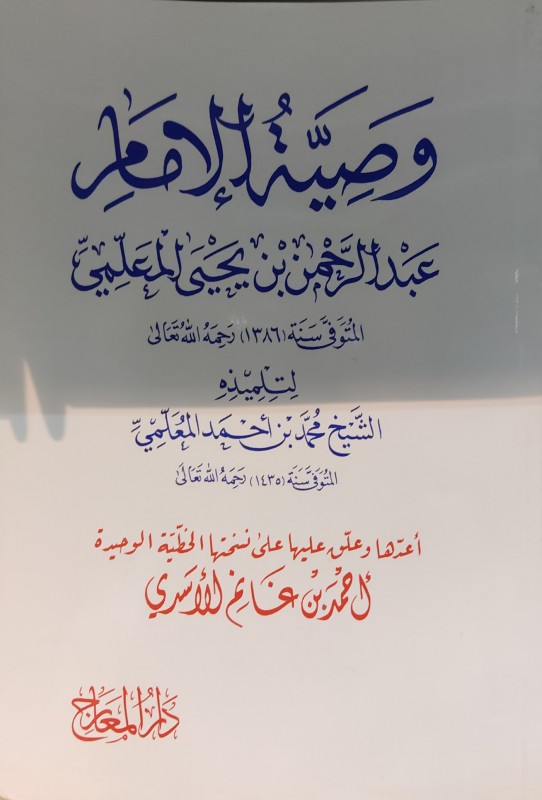 وَصِيَّةُ الإمَامِ
عَبْدِ الرَّحْمٰنِ بْنِ يَحْيَى المُعَلِّمِيِّ
المُتَوَفَّى سَنَة (١٣٨٦) رَحِمَهُ اللهُ تَعَالَى
لِتِلْمِيْذِهِ
الشَّيْخِ مُحَمَّد بْنِ أَحْمَد المُعَلِّمِيِّ
المُتَوَفَّى سَنَة (١٤٣٥) رَحِمَهُ اللهُ تَعَالَى
أعدّها وعلّق عليها على نسختها الخطّيّة الوحيدة
أَحْمَدُ بْنُ غَانِمٍ الأَسَدِي
دَارُ المَعَارِجِ